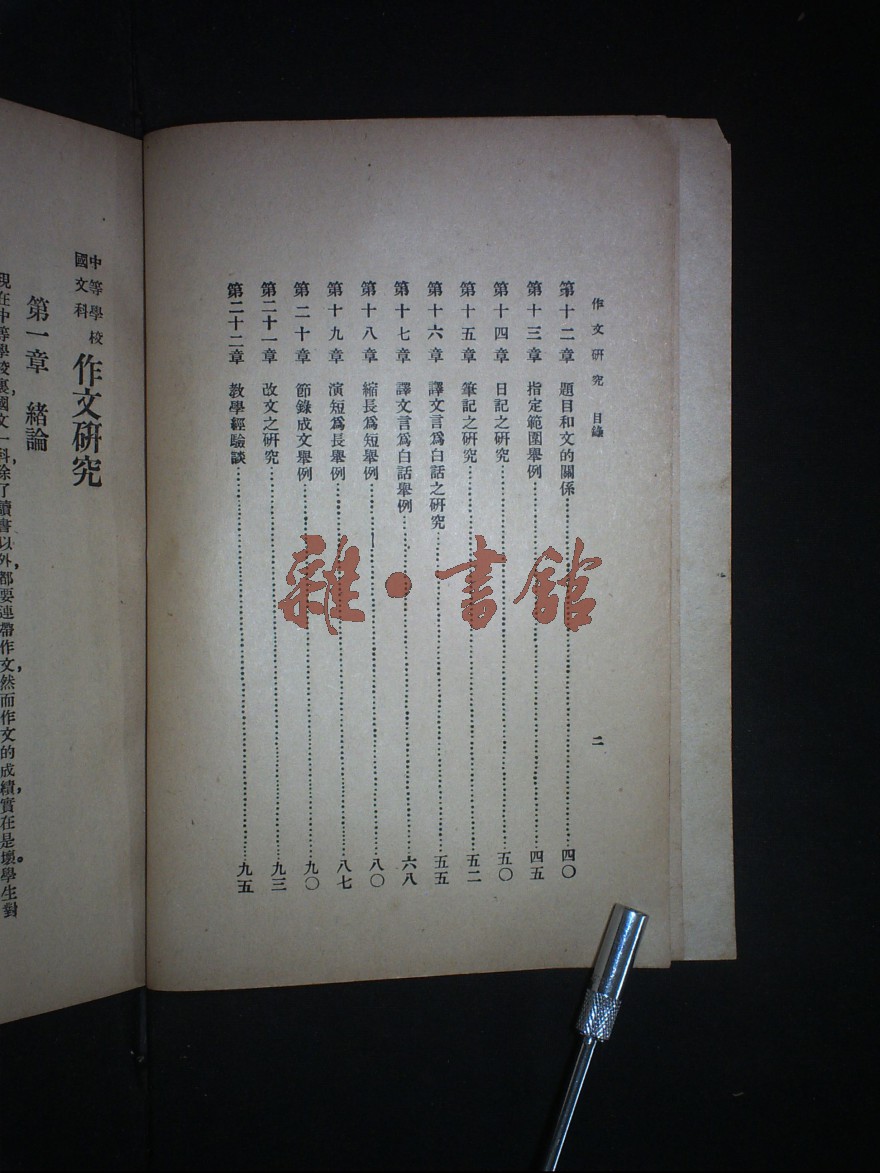 作文硏究 目錄
二
第十二章 題目和文的關係……四〇
第十三章 指定範圍舉例……四五
第十四章 日記之硏究……五〇
第十五章 筆記之硏究……五二
第十六章 譯文言爲白話之硏究……五五
第十七章 譯文言爲白話舉例……六八
第十八章 縮長爲短舉例……八〇
第十九章 演短爲長舉例……八七
第二十章 節錄成文舉例……九〇
第二十一章 改文之硏究……九三
第二十二章 教學經驗談……九五
中等學校
國文科
作文硏究
第一章 緒論
現在中等學校裏,國文一科,除了讀書以外,都要連帶作文,然而作文的成績,實在是壞。學生對
雜·書館